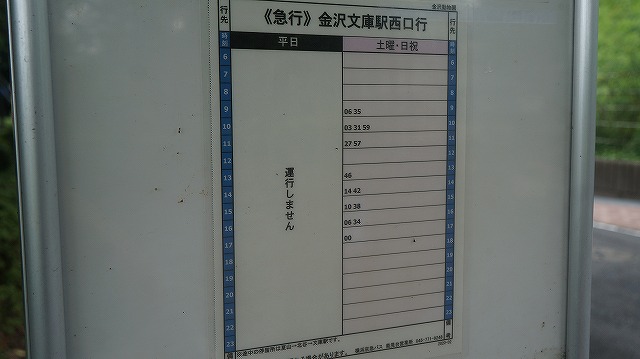 金沢動物園
行先 《急行》金沢文庫駅西口行 行先
時刻 平日 土曜・日祝 時刻
6 6
7 7
8 8
9 06 35 9
10 03 31 59 10
11 27 57 11
12 12
13 46 13
14 14 42 14
15 10 38 15
16 06 34 16
17 00 17
18 18
19 19
20 20
21 21
22 22
23 23
運行しません
備